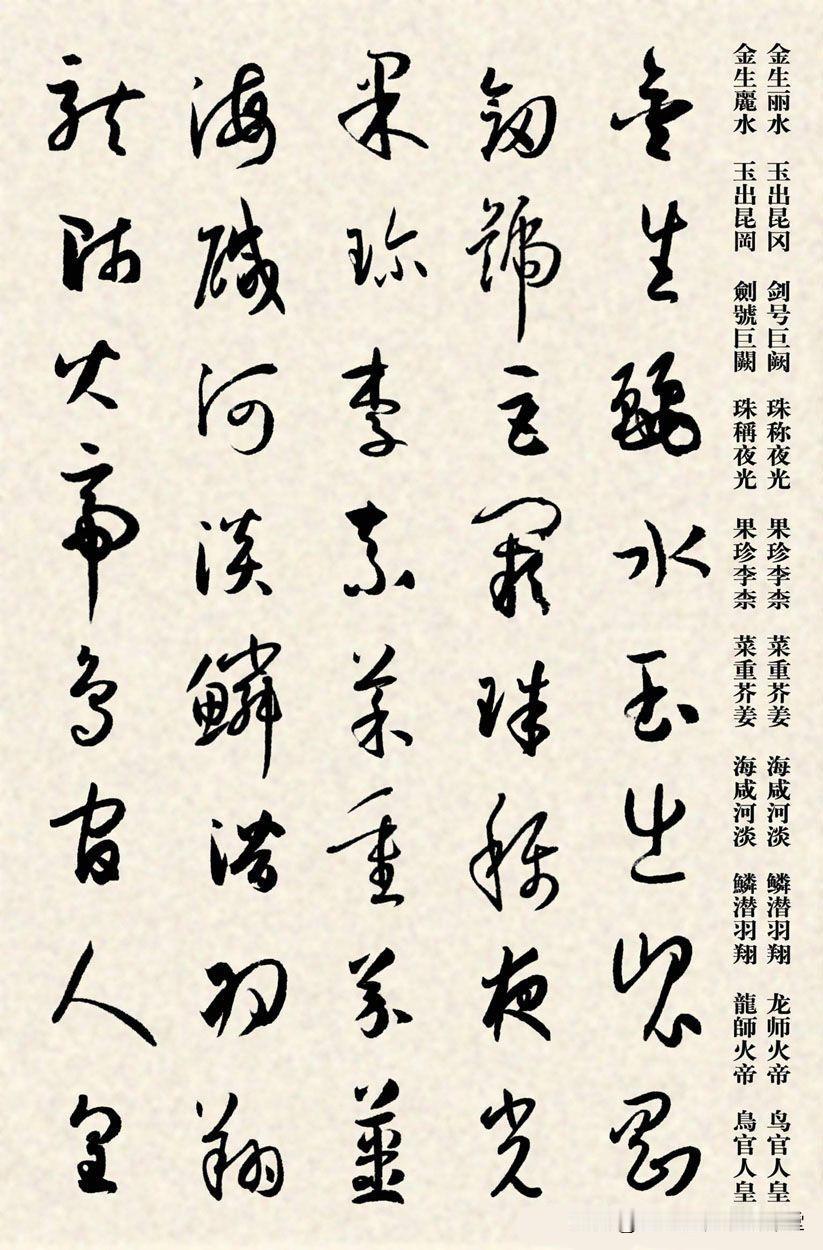 金生丽水 玉出昆冈 剑号巨阙 珠称夜光 果珍李柰 菜重芥姜 海咸河淡 鳞潜羽翔 龙师火帝 鸟官人皇
金生麗水 玉出昆岡 劍號巨闕 珠稱夜光 果珍李柰 菜重芥姜 海咸河淡 鱗潛羽翔 龍師火帝 鳥官人皇
金生麗水玉出崑岡
劍號巨闕珠稱夜光
果珍李柰菜重芥薑
海鹹河淡鱗潛羽翔
龍師火帝鳥官人皇